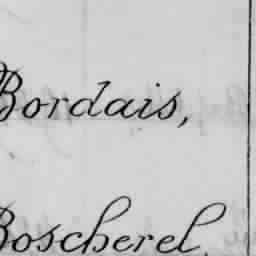 Bordais,
Boscherel,